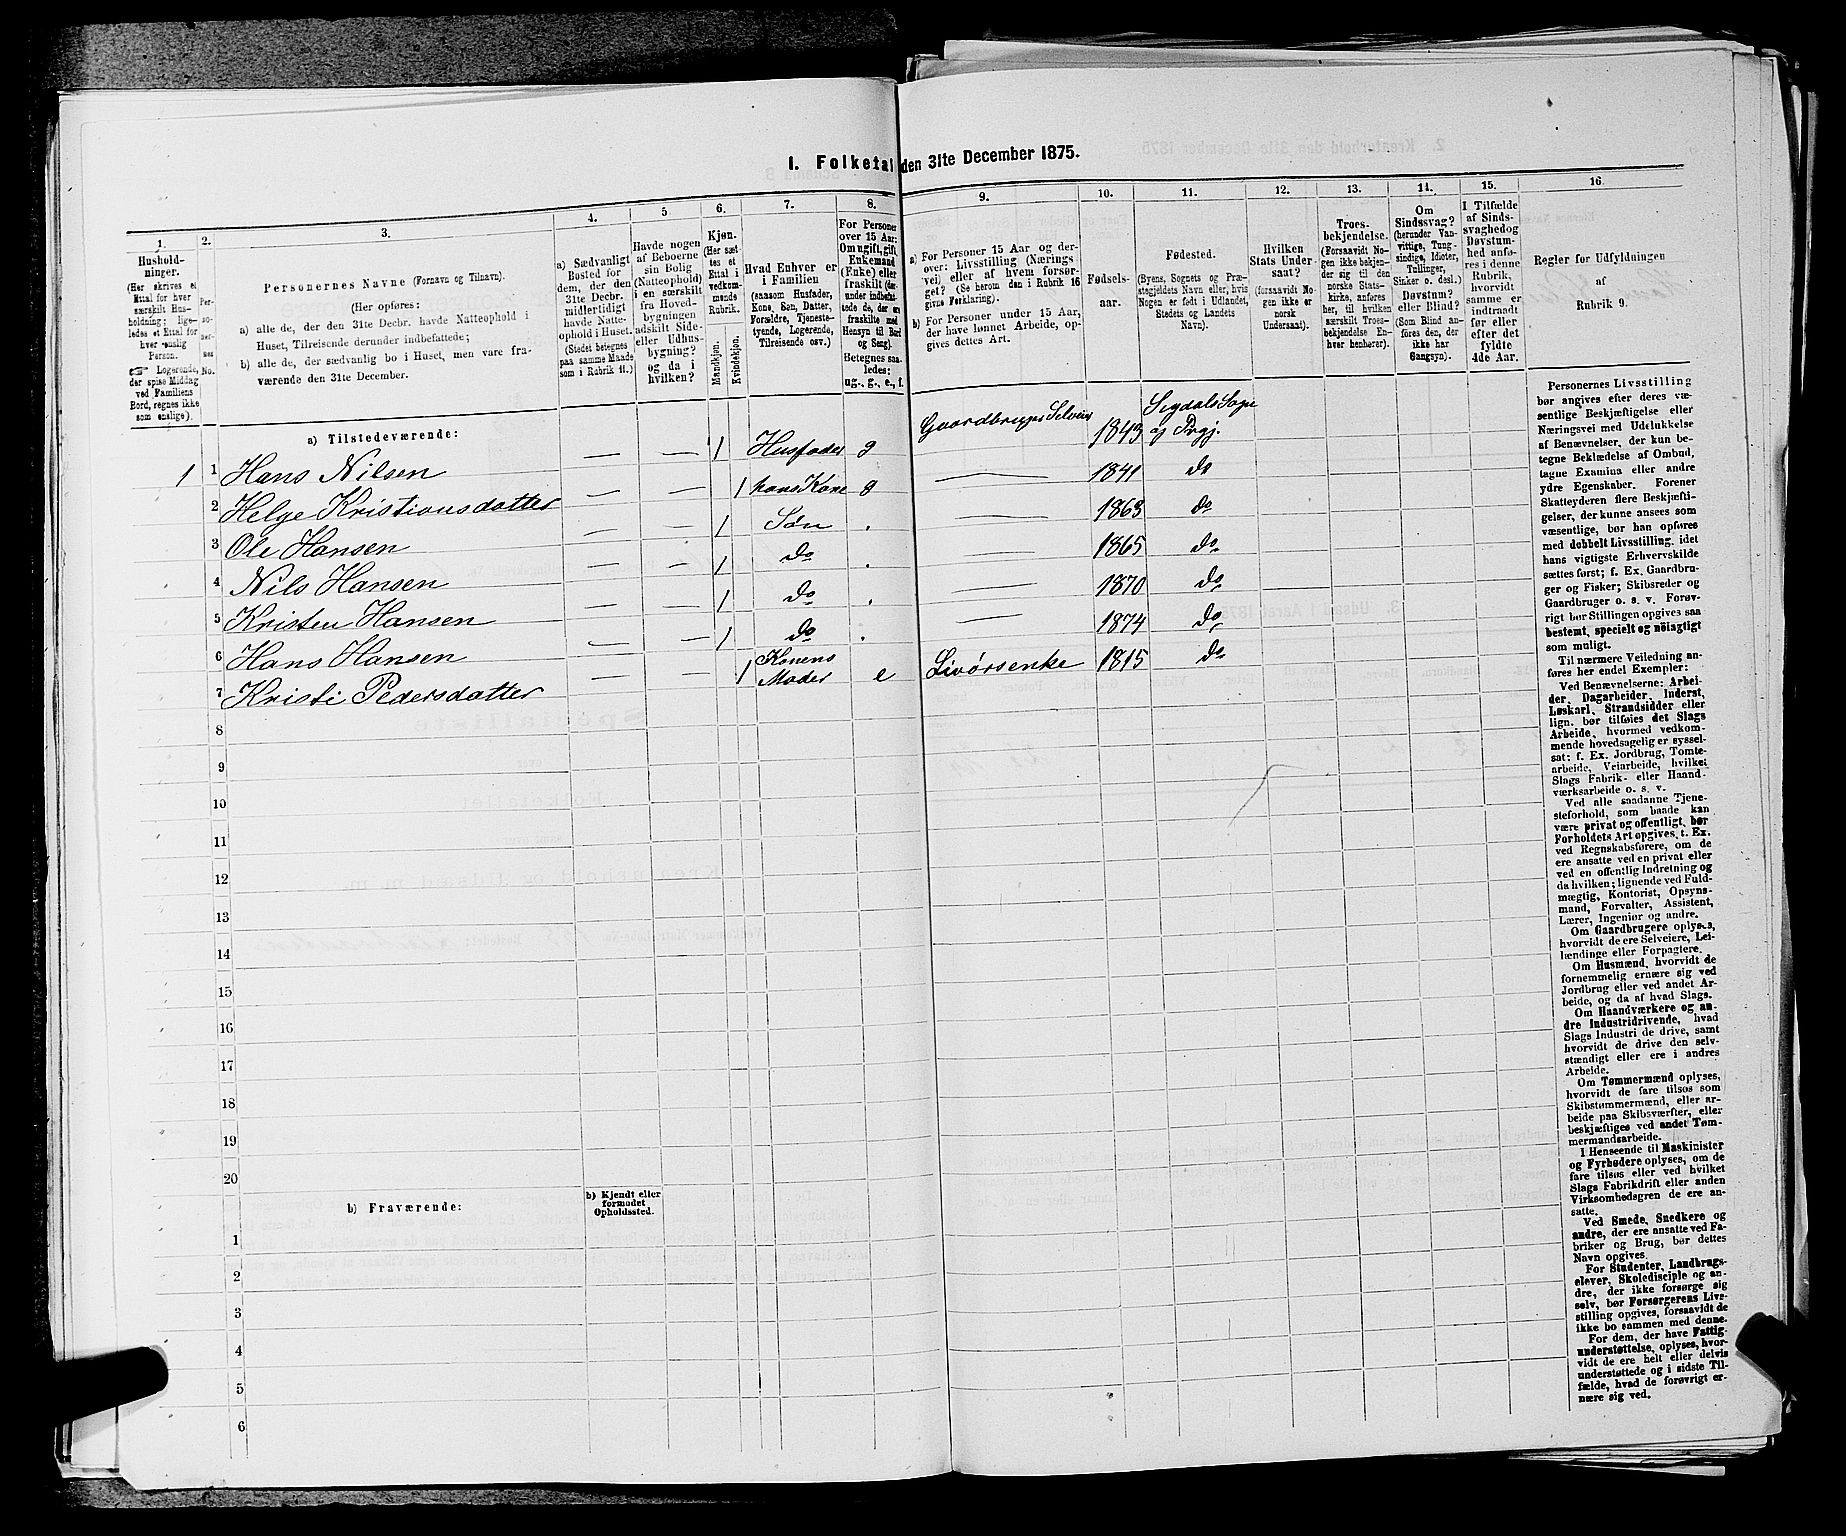 1. Folketal den 31te December 1875.
1.
Hushold-
ninger.
(Her skrives et
Ettal for hver
særskilt Hus-
holdning; lige-
ledes et Ettal for
hver enslig
Person.
☞ Logerende,
der spise Middag
ved Familiens
Bord, regnes ikke
som enslige).
2.
Per-
so-
ner-
nes
No.
3.
Personernes Navne (Fornavn og Tilnavn).
(Her opføres:
a) alle de, der den 31te Decbr. havde Natteophold i
Huset, Tilreisende derunder indbefattede;
b) alle de, der sædvanlig bo i Huset, men vare fra-
værende den 31te December.
4.
a) Sædvanligt
Bosted for
dem, der den
31te Decbr.
midlertidigt
havde Natte-
ophold i Huset.
(Stedet betegnes
paa samme Maade
som i Rubrik 11.)
5.
Havde nogen
af Beboerne
sin Bolig
(Natteophold)
i en særskilt
fra Hoved-
bygningen
adskilt Side-
eller Udhus-
bygning?
og da i
hvilken?
6.
Kjøn.
(Her sæt-
tes et
Ettal i
vedkom-
mende
Rubrik.
Mandkjøn.
Kvindekjøn.
7.
Hvad Enhver er
i Familien
(saasom Husfader,
Kone, Søn, Datter,
Forældre, Tjeneste-
tyende, Logerende,
Tilreisende osv.)
8.
For Personer
over 15 Aar:
Om ugift, gift,
Enkemand
(Enke) eller
fraskilt (der-
under indbefat-
tede de, der ere
fraskilte med
Hensyn til Bord
og Seng).
Betegnes saa-
ledes:
ug., g., e., f.
9.
a) For Personer 15 Aar og der-
over: Livsstilling (Nærings-
vei) eller af hvem forsør-
get? (Se herom den i Rubrik 16
givne Forklaring).
b) For Personer under 15 Aar,
der have lønnet Arbeide, op-
gives dettes Art.
10.
Fødsels-
aar.
11.
Fødested.
(Byens, Sognets og Præ-
stegjeldets Navn eller, hvis
Nogen er født i Udlandet,
Stedets og Landets
Navn).
12.
Hvilken
Stats Under-
saat?
(forsaavidt No-
gen ikke er
norsk
Undersaat).
13.
Troes-
bekjendelse.
(Forsaavidt No-
gen ikke bekjen-
der sig til den
norske Stats-
kirke, anføres
her, til hvilken
særskilt Troes-
bekjendelse En-
hver henhører).
14.
Om
Sindssvag?
(herunder Van-
vittige, Tung-
sindige, Idioter,
Tullinger,
Sinker o. desl.)
Døvstum?
eller Blind?
(Som Blind an-
føres den, der
ikke har
Gangsyn).
15.
I Tilfælde
af Sinds-
svaghed og
Døvstum-
hed anfø-
res i denne
Rubrik,
hvorvidt
samme er
indtraadt
før eller
efter det
fyldte
4de Aar.
16.
Regler for Udfyldningen
af
Rubrik 9.
a) Tilstedeværende:
1 1 Hans Nilsen — — 1 Husfader g Gaardbruger Selveier 1843 Sigdals Sogn og Prgj.
2 Helge Kristiansdatter — — 1 hans Kone g — 1841 do
3 Ole Hansen — — 1 Søn . — 1863 do
4 Nils Hansen — — 1 do . — 1865 do
5 Kristen Hansen — — 1 do . — 1870 do
6 Hans Hansen — — 1 do . — 1874 do
7 Kristi Pedersdatter — — 1 Konens Moder e Livørsenke 1815 do
8
9
10
11
12
13
14
15
16
17
18
19
20
b) Fraværende:
b) Kjendt eller
formodet
Opholdssted.
1
2
3
4
5
6
Personernes Livsstilling
bør angives efter deres væ-
sentlige Beskjæftigelse eller
Næringsvei med Udelukkelse
af Benævnelser, der kun be-
tegne Beklædelse af Ombud,
tagne Examina eller andre
ydre Egenskaber. Forener
Skatteyderen flere Beskjæfti-
gelser, der kunne ansees som
væsentlige, bør han opføres
med dobbelt Livsstilling, idet
hans vigtigste Erhvervskilde
sættes først; f. Ex. Gaardbru-
ger og Fisker; Skibsreder og
Gaardbruger o. s. v. Forøv-
rigt bør Stillingen opgives saa
bestemt, specielt og nøiagtigt
som muligt.
Til nærmere Veiledning an-
føres her endel Exempler:
Ved Benævnelserne: Arbei-
der, Dagarbeider, Inderst,
Løskarl, Strandsidder eller
lign. bør tilføies det Slags
Arbeide, hvormed vedkom-
mende hovedsagelig er syssel-
sat; f. Ex. Jordbrug, Tomte-
arbeide, Veiarbeide, hvilket
Slags Fabrik- eller Haand-
værksarbeide o. s. v.
Ved alle saadanne Tjene-
steforhold, som baade kan
være privat og offentligt, bør
Forholdets Art opgives, t. Ex.
ved Regnskabsførere, om de
ere ansatte ved en privat eller
ved en offentlig Indretning og
da hvilken; lignende ved Fuld-
mægtig, Kontorist, Opsyns-
mand, Forvalter, Assistent,
Lærer, Ingeniør og andre.
Om Gaardbrugere oplyses,
hvorvidt de ere Selveiere, Lei-
lændinge eller Forpagtere.
Om Husmænd, hvorvidt de
fornemmelig ernære sig ved
Jordbrug eller ved andet Ar-
beide, og da af hvad Slags.
Om Haandværkere og an-
dre Industridrivende, hvad
Slags Industri de drive, samt
hvorvidt de drive den selv-
stændigt eller ere i andres
Arbeide.
Om Tømmermænd oplyses,
hvorvidt de fare tilsøs som
Skibstømmermænd, eller ar-
beide paa Skibsværfter, eller
beskjæftiges ved andet Tøm-
mermandsarbeide.
I Henseende til Maskinister
og Fyrbødere oplyses, om de
fare tilsøs eller ved hvilket
Slags Fabrikdrift eller anden
Virksomhedsgren de ere an-
satte.
Ved Smede, Snedkere og
andre, der ere ansatte ved Fa-
briker og Brug, bør dettes
Navn opgives.
For Studenter, Landbrugs-
elever, Skoledisciple og an-
dre, der ikke forsørge sig
selv, bør Forsørgerens Livs-
stilling opgives, forsaavidt de
ikke bo sammen med denne.
For dem, der have Fattig-
understøttelse, oplyses, hvor-
vidt de ere helt eller delvis
understøttede og i sidste Til-
fælde, hvad de forøvrigt er-
nære sig ved.